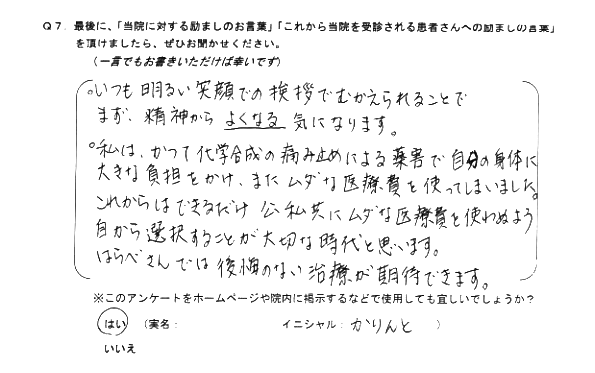 Q7. 最後に、「当院に対する励ましのお言葉」「これから当院を受診される患者さんへの励ましの言葉」
を頂けましたら、ぜひお聞かせください。
(一言でもお書きいただけば幸いです)
。いつも明るい笑顔での挨拶でむかえられることで
まず、精神からよくなる気になります。
。私は、かつて化学合成の痛み止めによる薬害で自分の身体に
大きな負担をかけ、またムダな医療費を使ってしまいました。
これからはできるだけ公私共にムダな医療費を使わぬよう
自から選択することが大切な時代と思います。
はらべさんでは後悔のない治療が期待できます。
※このアンケートをホームページや院内に掲示するなどで使用しても宜しいでしょうか?
はい (実名: イニシャル: かりんと )
いいえ